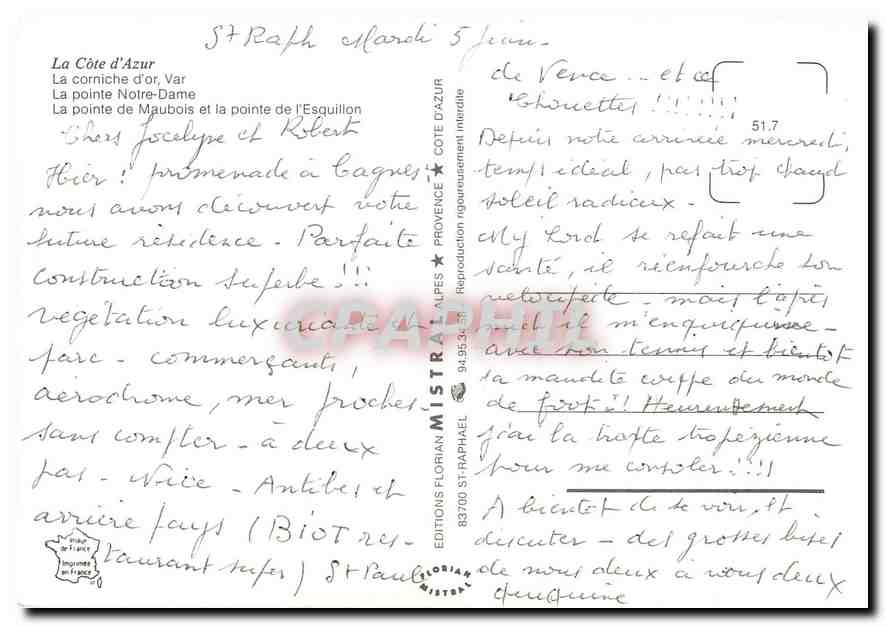 St Raph Mardi 5 juin -
La Côte d'Azur
La corniche d'or, Var
La pointe Notre-Dame
La pointe de Maubois et la pointe de l'Esquillon
Chers Jocelyne et Robert
Hier ! promenade à Cagnes :
nous avons découvert votre
future résidence - Parfaite
construction superbe !!!
végétation luxuriante et
parc - commerçants,
aérodrome, mer proches -
sans compter - à deux
pas - Nice - Antibes et
arrière pays (BIOT res-
taurant super) St Paul
de Vence ... et
Chouettes !!!!!!!
Depuis notre arrivée mercredi,
temps idéal, pas trop chaud
soleil radieux -
My Lord se refait une
santé, il réenfourche son
vélocipède - mais l'après
midi il m'enquiquine -
avec son tennis et bientôt
sa maudite coupe du monde
de foot !! Heureusement
j'ai la tropézienne
pour me consoler !!!!
A bientôt de se voir, et
discuter - des grosses bises
de nous deux à vous deux
51.7
EDITIONS FLORIAN MISTRAL ALPES ★ PROVENCE ★ COTE D'AZUR
83700 ST-RAPHAEL
94.95.3
Reproduction rigoureusement interdite
Image de France
Imprimée en France
FLORIAN MISTRAL
CPAPHIL